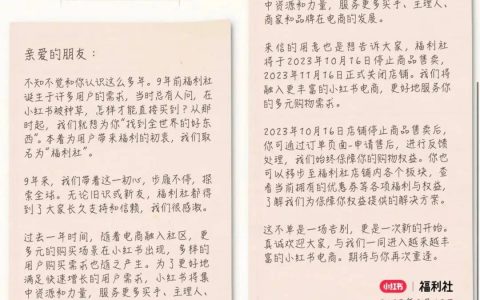 亲爱的朋友：
不知不觉和你认识这么多年。9年前福利社
诞生于许多用户的需求，当时总有人问，在
小红书被种草，怎样才能直接买到？从那
时起，我们就想为你“找到全世界的好东
西”。本着为用户带来福利的初衷，我们取
名为“福利社”。
9年来，我们带着这一初心，步履不停，探
索全球。无论旧识或新友，福利社都得
到了大家长久支持和信赖，我们很感激。
过去一年时间，随着电商融入社区，更
多元的购买场景在小红书出现，多样的
用户购买需求也随之产生。为了更好地
满足快速增长的用户需求，小红书将集
中资源和力量，服务更多买手、主理人、
中资源和力量，服务更多买手、主理人、
商家和品牌在电商的发展。
来信的用意也是想告诉大家，福利社
将于2023年10月16日停止商品售卖，
2023年11月16日正式关闭店铺。我们将
融入更丰富的小红书电商，更好地服务你
的多元购物需求。
2023年10月16日店铺停止商品售卖后，
你可通过订单页面-申请售后，进行反馈
处理，我们始终保障你的购物权益。你也
可以移步至福利社店铺内各个板块，查
看当前拥有的优惠券等各项福利与权益，
了解我们为保障你权益提供的解决方案。
这不单是一场告别，更是一次新的开始。
真诚欢迎大家，与我们一同进入越来越丰
富的小红书电商。期待与你再次重逢。
小红书 福利社